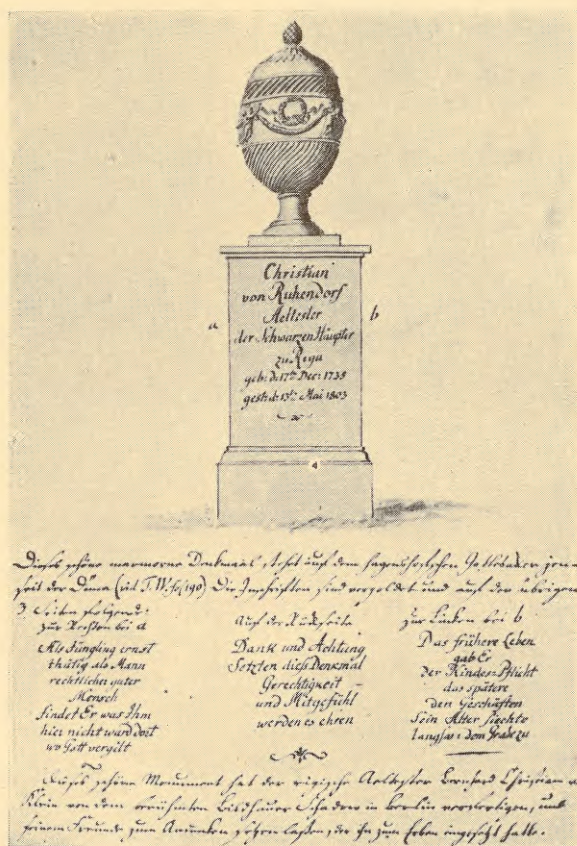 Christian
von Ruhendorf
Aeltester
der Schwarzen Häupter
zu Riga
geb: d: 17ten Dec: 1735
gest: d: 13ten Mai 1803
a
b
4
Dieses schöne marmorne Denkmal steht auf dem Hagenshofschen Gottesacker jen-
seit der Düna (vid T. W. 190) Die Inschriften sind vergoldet und auf der übrigen
3 Seiten folgende:
zur Rechten bei a
Als Jüngling ernst
thätig als Mann
rechtlicher guter
Mensch
findet Er was Ihm
hier nicht ward dort
wo Gott vergilt
Auf der Rückseite
Dank und Achtung
Setzten dieß Denkmal
Gerechtigkeit
und Mitgefühl
werden es ehren
zur Linken bei b
Das frühere Leben
gab Er
der Kindes-Pflicht
das spätere
den Geschäften
Sein Alter siechte
langsam dem Grabe zu
Dieses schöne Monument hat der rigische Aelteste Bernhard Christian
Klein von dem berühmten Bildhauer Schadow in Berlin verfertigen, und
seinem Freunde zum Andenken setzen lassen, der ihn zum Erben eingesetzt hatte.